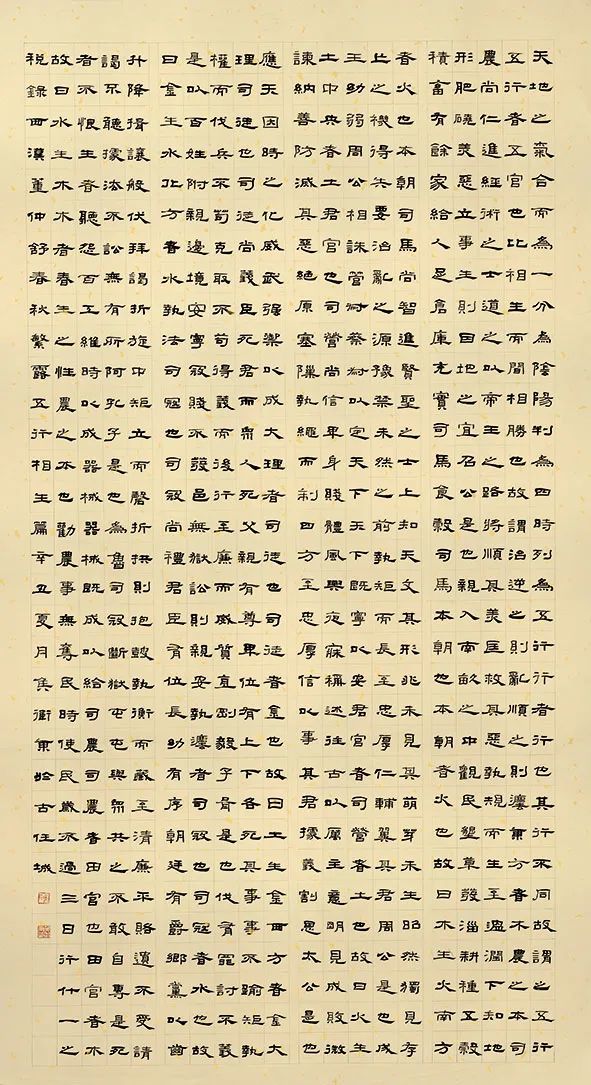 天地之氣合而為一分為陰陽判為四時列為五行行者行也其行不同故謂之五行
五行者五官也比相生而間相勝也故謂治逆之則亂順之則治東方者木農之本司
農尚仁進經術之士道之以帝王之路將順其美匡救其惡執規而生至溫潤下知地
形肥磽美惡立事生則因地之宜召公是也親入南畝之中觀民墾草發淄耕種五穀
積蓄有餘家給人足倉庫充實司馬食穀司馬本朝也本朝者火也故曰木生火南方
者火也本朝司馬尚智進賢聖之士上知天文其形兆未見其萌芽未生昭然獨見存
亡之機得失要治亂之源豫禁未然之前執矩而長至忠厚仁輔翼其君周公是也成
王幼弱周公相誅管叔蔡叔以定天下天下既寧以安君官者司營者土也故曰火生
土中央者土君官也司營尚信卑身賤體夙興夜寐稱述往古以厲主意明見成敗微
諫納善防滅其惡絕原塞隟執繩而制四方至忠厚信以事其君據義割恩太公是也
應天因時之化威武強禦以成大理者司徒也司徒者金也故曰土生金西方者金大
理司徒也司徒尚義臣死君而眾人死父親有尊卑位有上下各死其事事不踰矩執
權而伐兵不苟克取不苟得義而後行至廉而威質直剛毅子胥是也伐有罪討不義
是以百姓附親邊境安寧寇賊不發邑無獄訟則親安執法者司寇也司寇者水也故
曰金生水北方者水執法司寇也司寇尚禮君臣有位長幼有序朝廷有爵鄉黨以齒
升降揖讓般伏拜謁折旋中矩立而磬折拱則抱鼓執衡而藏至清廉平賂遺不受請
謁不聽據法聽訟無有所阿孔子是也為魯司寇斷獄屯屯與眾共之不敢自專是死
者不恨生者不怨百工維時以成器械器械既成以給司農司農者田官也田官者木
故曰水生木木者春生之性農之本也勸農事無奪民時使民歲不過三日行什一之
稅錄西漢董仲舒春秋繁露五行相生篇辛丑夏月焦衛東於古任城